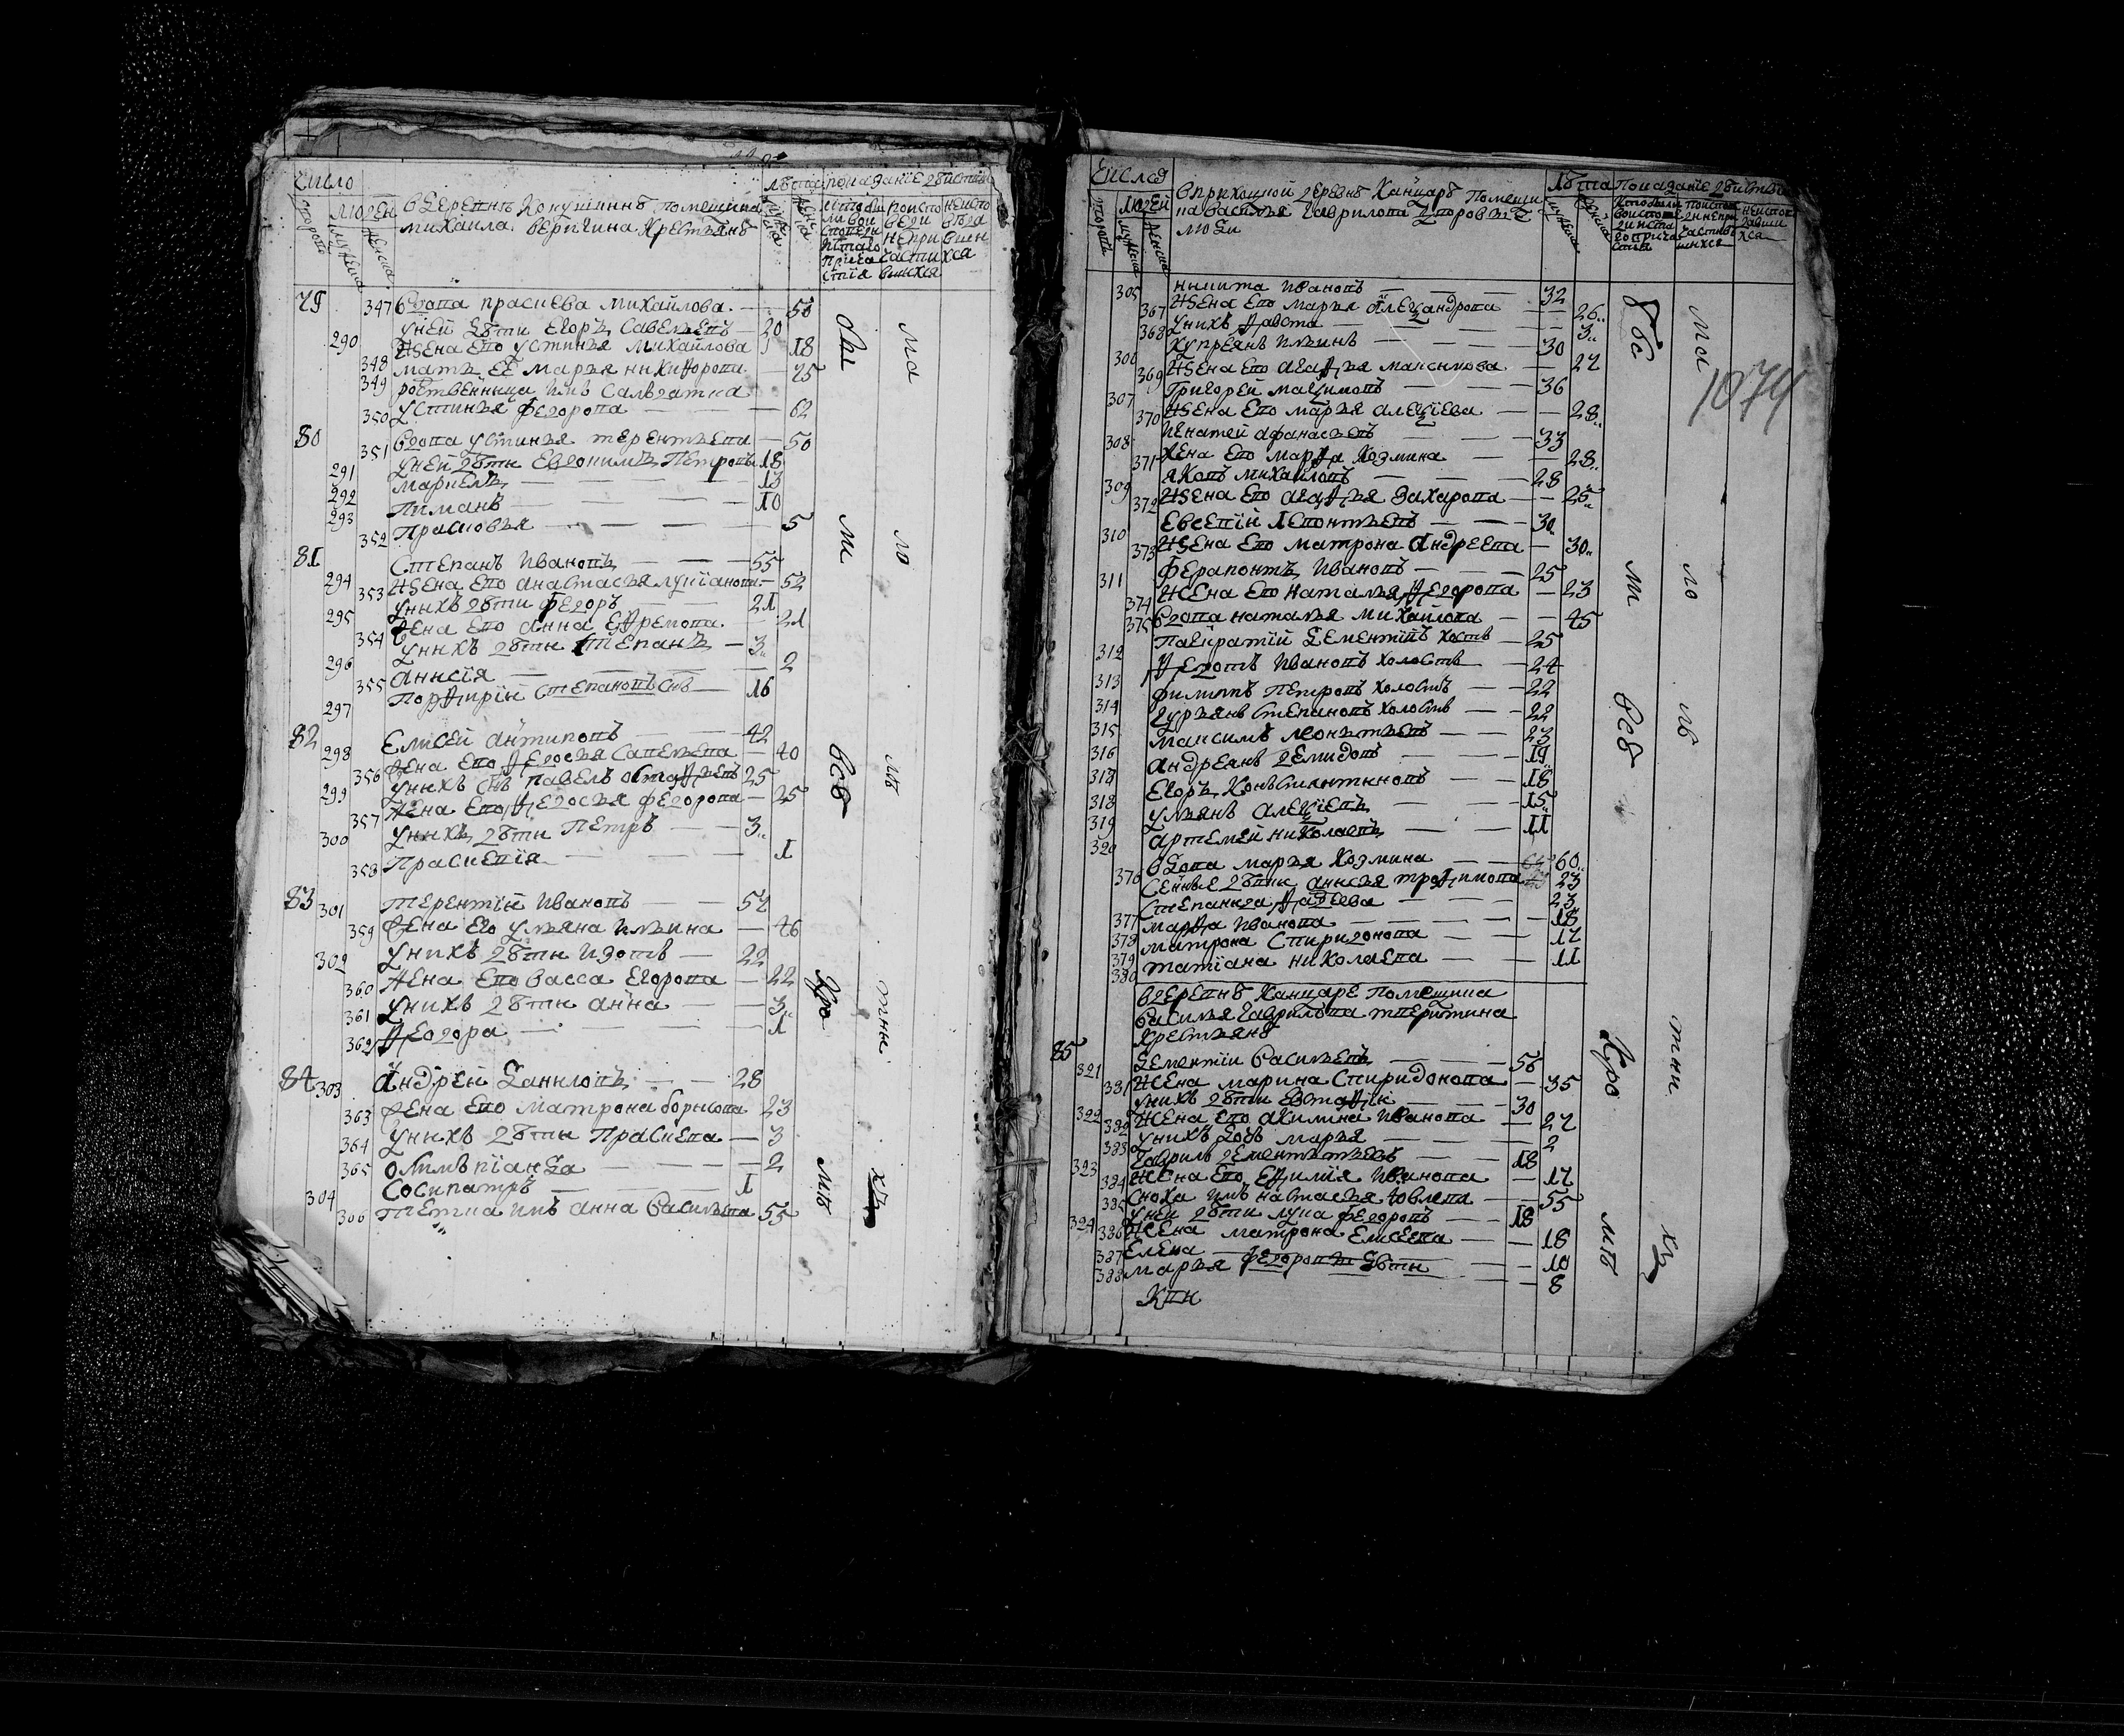 Число
Людей
въ деревнѣ Конушкинѣ помещика
михаила Веригина крестьянъ
Лѣта
показание действа
79 347 вдова прасковья михайлова — 50
290 у ней дѣти Егоръ Савельевъ — 20
348 жена его устинья михайлова 18
349 мать ее марья никифорова — 75
родственница имъ салдатка
350 устинья федорова — 62
80 351 вдова устинья терентьева — 50
291 у ней дѣти Евдокимъ Петровъ 18
292 маркелъ — 13
293 пиманъ — 10
352 Прасковья — 5
81 294 Степанъ Ивановъ — 55
353 жена его анастасья лукианова — 52
295 у нихъ дѣти федоръ — 21
354 жена его анна Ефремова — 21
296 у нихъ дѣти степанъ — 3
355 анисия — 2
297 Порфирий Степановъ сынъ — 16
82 298 Елисей антиповъ — 42
356 жена его федосья савельева — 40
299 у нихъ сынъ павелъ остафьевъ 25
357 жена его федосья федорова — 25
300 у нихъ дѣти Петръ — 3
358 Праскевия — 1
83 301 терентий Ивановъ — 52
359 жена его ульяна ильина — 46
302 у нихъ дѣти изотъ — 22
360 жена его васса Егорова — 22
361 у нихъ дѣти анна — 3
362 федора — 1
84 303 андрей даниловъ — 28
363 жена его матрона борисова 23
364 у нихъ дѣти Праскева — 3
365 олимпиада — 2
304 Сосипатръ — 1
366 тетка имъ анна Васильева 55
Числа
Людей
в приходной деревнѣ Канцарѣ Помещи
ка василья Гаврилова дворовые
люди
Лѣта
показание действа
1074
305 никита ивановъ — 32
367 жена его марья александрова — 26
368 у нихъ фавста — 3
306 купреянъ ильинъ — 30
369 жена его агафья максимова — 27
307 Григорей максимовъ — 36
370 жена его марья алексиева — 28
308 игнатей афанасьевъ — 33
371 жена его марфа козмина — 28
309 яковъ михайловъ — 28
372 жена его агафья захарова — 25
310 Евсевий леонтьевъ — 30
373 жена его матрона андреева — 30
311 ферапонтъ ивановъ — 25
374 жена его наталья федорова — 23
375 вдова наталья михайлова — 45
312 Панкратий дементиевъ холостъ — 25
313 федотъ ивановъ холостъ — 24
314 филипъ петровъ холостъ — 22
315 гурьянъ степановъ холостъ — 22
316 максимъ леонтьевъ — 23
317 андреянъ демидовъ — 19
318 Егоръ константиновъ — 18
319 ульянъ алексиевъ — 15
320 артемей николаевъ — 11
376 вдова марья козмина — 60
сенные дѣвки анисья трофимова 23
377 Степанида фадеева — 23
378 марфа иванова — 18
379 матрона Спиридонова — 17
380 татиана николаева — 11
в деревнѣ Канцаре помещика
василья гаврилова тперитина
крестьянъ
85 321 дементий васильевъ — 56
381 жена марина Спиридонова — 35
322 у нихъ дѣти Евстафий — 30
382 жена его акилина иванова — 27
383 у нихъ дочь марья — 2
323 гаврилъ дементьевъ — 18
384 жена его Ефимия иванова — 17
385 Сноха имъ настасья Iовлева — 55
324 у ней дѣти лука федоровъ — 18
386 жена матрона Елисеева — 18
387 Елена — 10
388 марья федоровы дѣти — 8